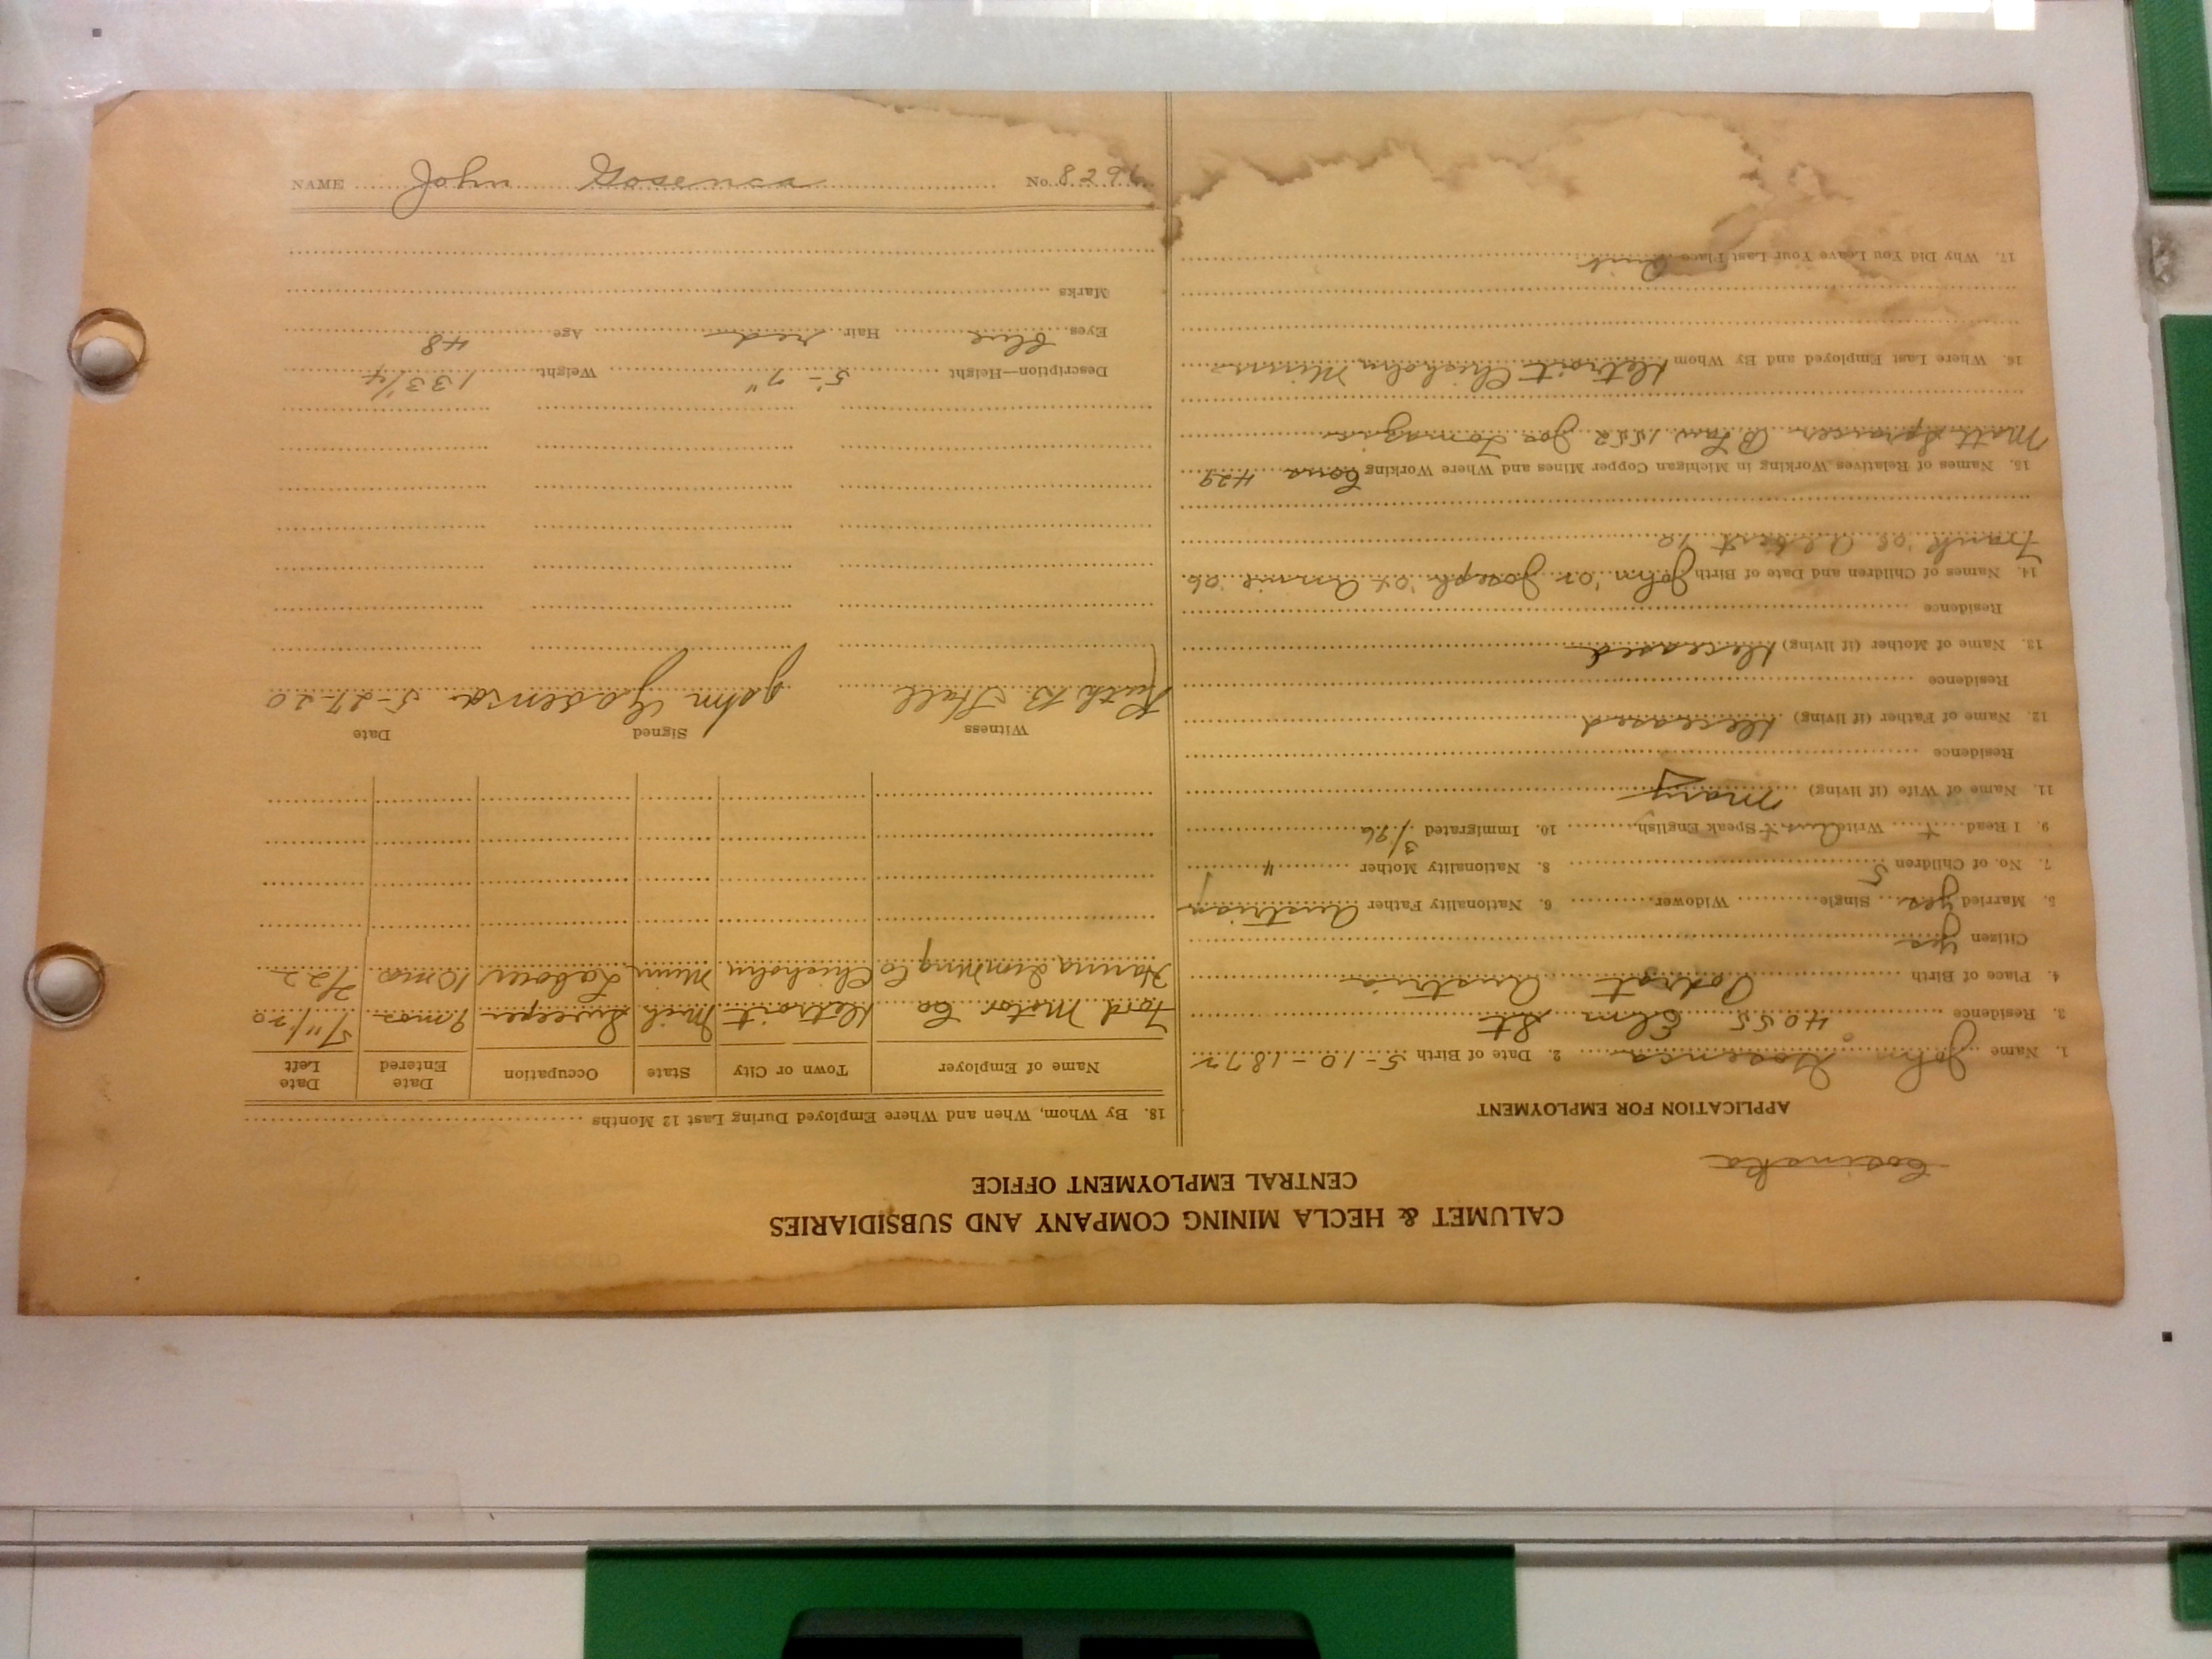 CALUMET & HECLA MINING COMPANY AND SUBSIDIARIES
CENTRAL EMPLOYMENT OFFICE
Cosinska
APPLICATION FOR EMPLOYMENT
1. Name John Gosenca 2. Date of Birth 5-10-1872
3. Residence 4055 Elm St
4. Place of Birth Austria
Citizen yes
5. Married yes Single Widower 6. Nationality Father Austrian
7. No. of Children 5 8. Nationality Mother "
9. I Read x Write Aus x Speak English 10. Immigrated
11. Name of Wife (if living) Mary
Residence
12. Name of Father (if living) Deceased
Residence
13. Name of Mother (if living) Deceased
Residence
14. Names of Children and Date of Birth John '02 Joseph '04 Annie '06
Frank '08 Albert '10
15. Names of Relatives Working in Michigan Copper Mines and Where Working Cous 429
Matt B Law 1552 Joe
16. Where Last Employed and By Whom Detroit Chisholm Minn
17. Why Did You Leave Your Last Place Quit
18. By Whom, When and Where Employed During Last 12 Months
Name of Employer Town or City State Occupation Date Entered Date Left
Ford Motor Co Detroit Mich Sweeper 9 mos 5/11/20
Hanna Mining Co Chisholm Minn Labour 10 mos
Witness Signed Date
Ruth B Hall John Gosenca 5-27-20
Description—Height 5'-7" Weight 133 1/4
Eyes blue Hair red Age 48
Marks
NAME John Gosenca No. 829